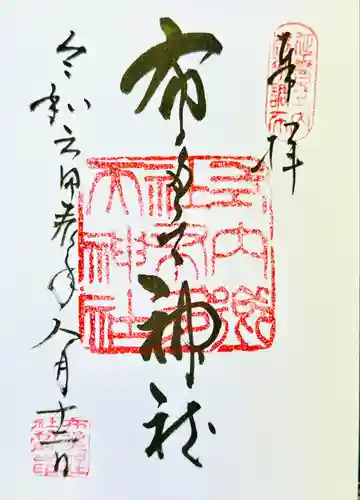 奉拝
布多天神社
令和六甲辰年八月十一日
式内郷
社布多
天神社